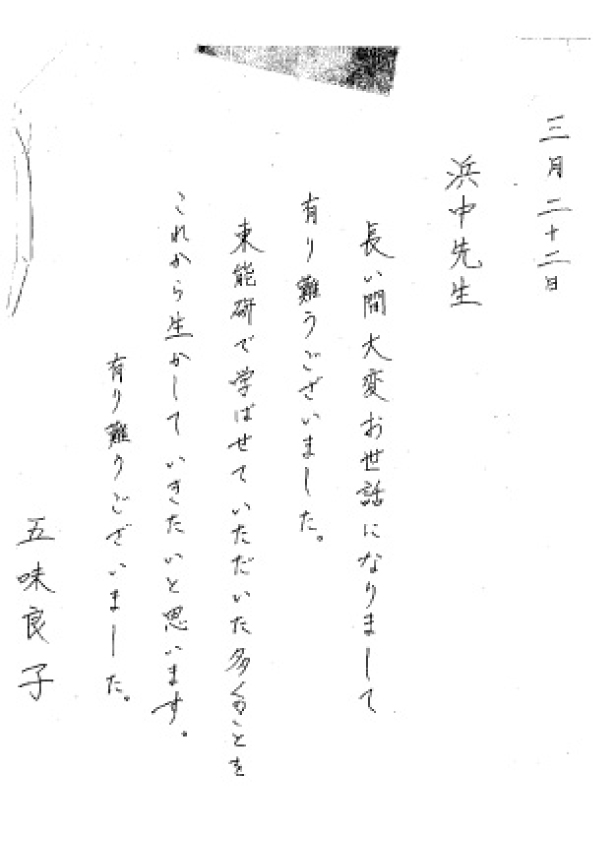 三月二十二日
浜中先生
長い間大変お世話になりまして
有り難うございました。
東能研で学ばせていただいた多くのことを
これから生かしていきたいと思います。
有り難うございました。
五味良子